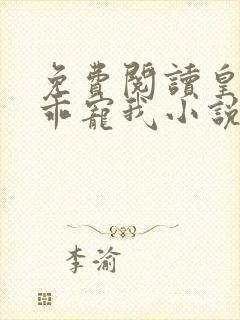 免費閱讀皇
乖寵我小說
李渝